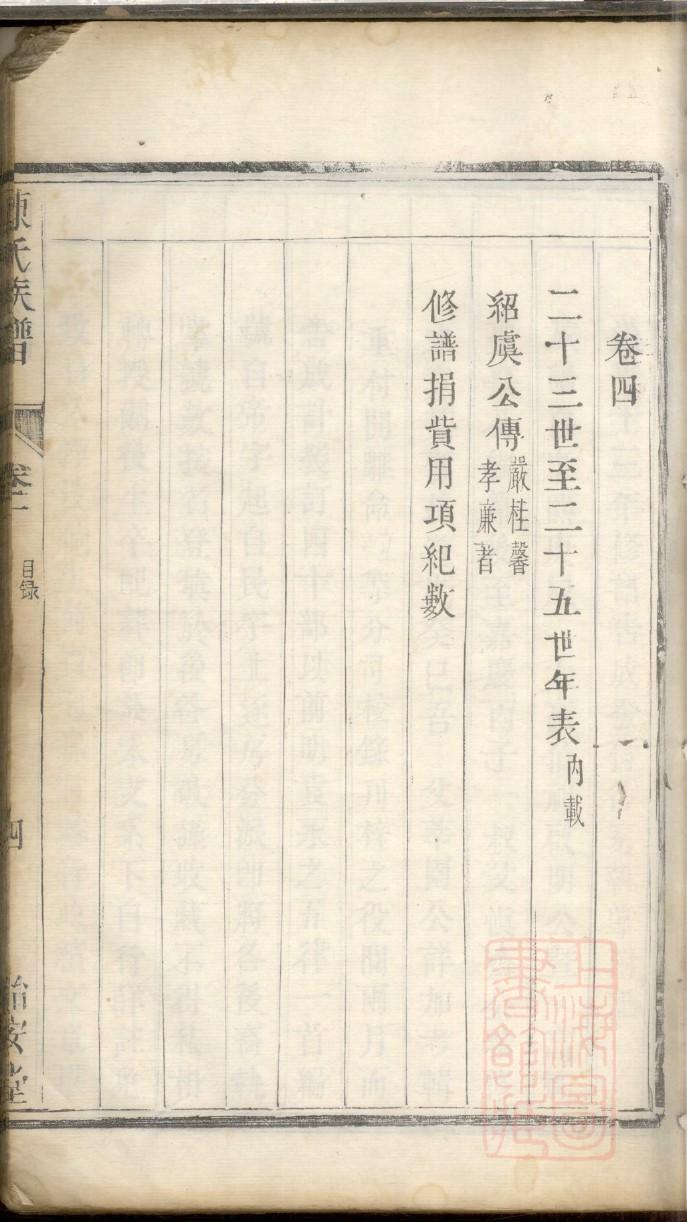 卷四
二十三世至二十五世年表 內載
紹虞公傳 嚴桂馨
孝廉著
修譜捐貲用項紀數
陳氏族譜
目錄
四
上海圖書館藏